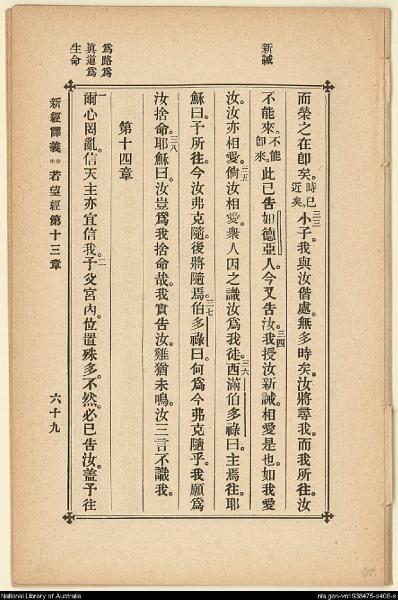 新誡
爲路爲
眞道爲
生命
而榮之在卽矣。時已近矣。三三小子。我與汝偕處。無多時矣。汝將尋我。而我所往。汝
不能來。卽不能來。此已告如德亞人。今又告汝。三四我授汝新誡。相愛是也。如我愛
汝。汝亦相愛。三五倘汝相愛。衆人因之識汝爲我徒。三六西滿伯多祿曰。主焉往。耶
穌曰。予所往。今汝弗克隨。後將隨焉。三七伯多祿曰。何爲今弗克隨乎。我願爲
汝捨命。三八耶穌曰。汝豈爲我捨命哉。我實告汝。雞猶未鳴。汝三言不識我。
第十四章
一爾心罔亂。信天主亦宜信我。二予父宮內。位置殊多。不然。必已告汝。蓋予往
新經譯義 若望經第十三章 六十九
National Library of Australia
nla.gen-vn1938475-s408-e